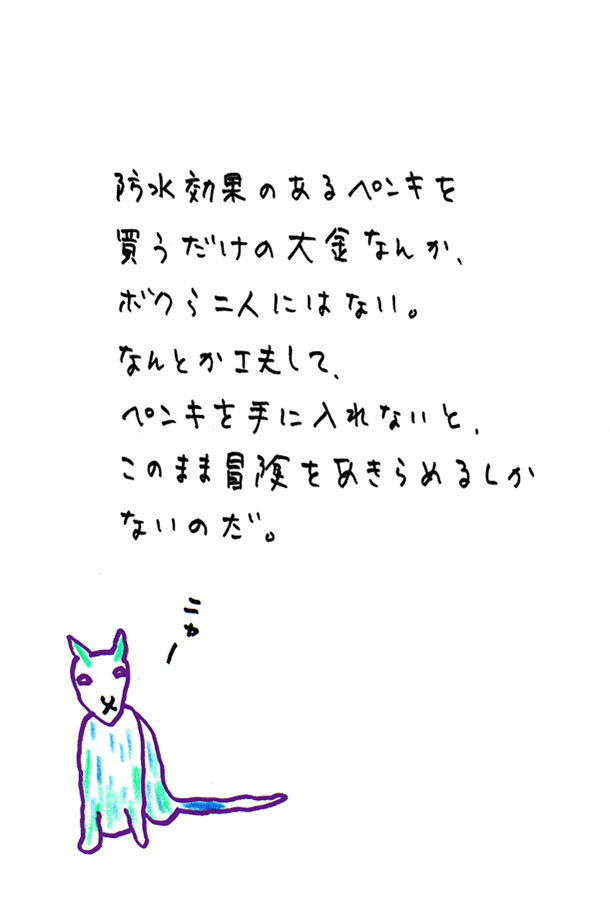 防水効果のあるペンキを
買うだけの大金なんか、
ボクら二人にはない。
なんとか工夫して、
ペンキを手に入れないと、
このまま冒険をあきらめるしか
ないのだ。
ニャー